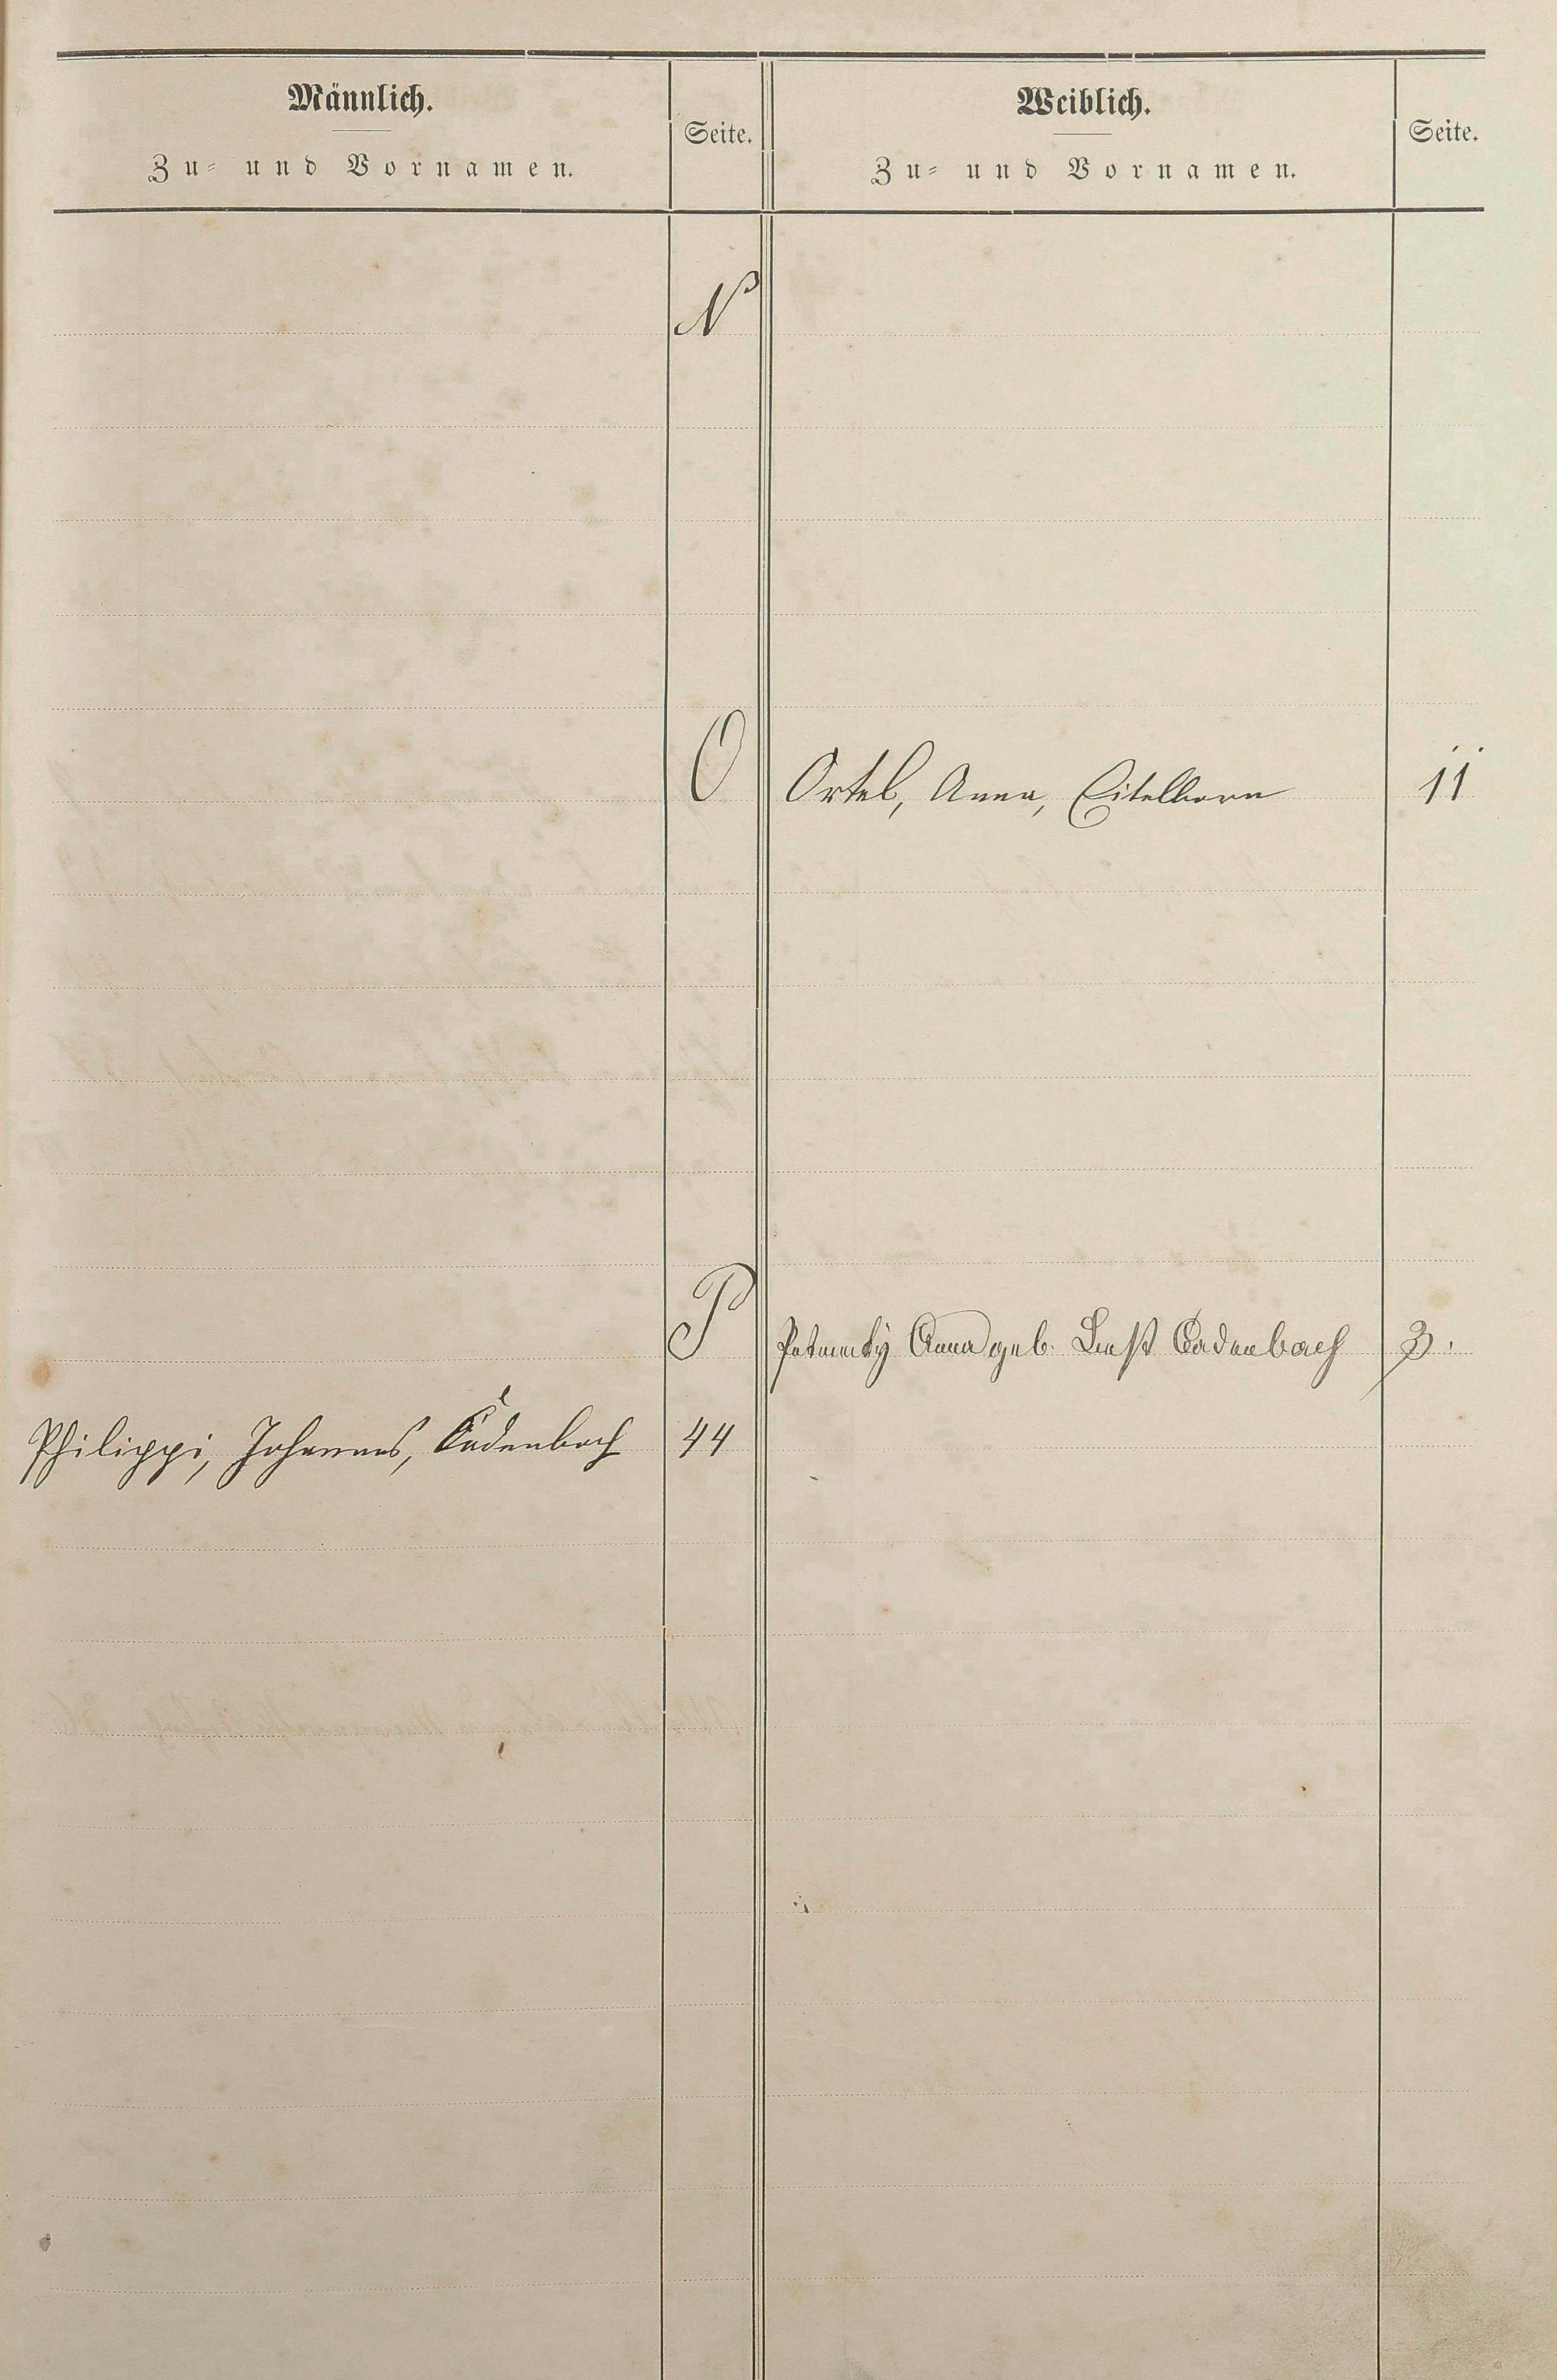 Männlich.
Zu- und Vornamen.
Seite.
Weiblich.
Zu- und Vornamen.
Seite.
N
O
Ortel, Anna, Eitelborn
11
P
Anna geb. Cadenbach
3.
Philippi, Johannes, Cadenbach
44